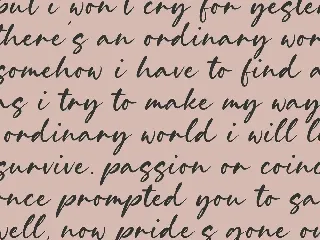 but i won't cry for yester
there's an ordinary wor
somehow i have to find a
as i try to make my way
ordinary world i will l
survive. passion or coinc
ence prompted you to sa
well, now pride s gone ou